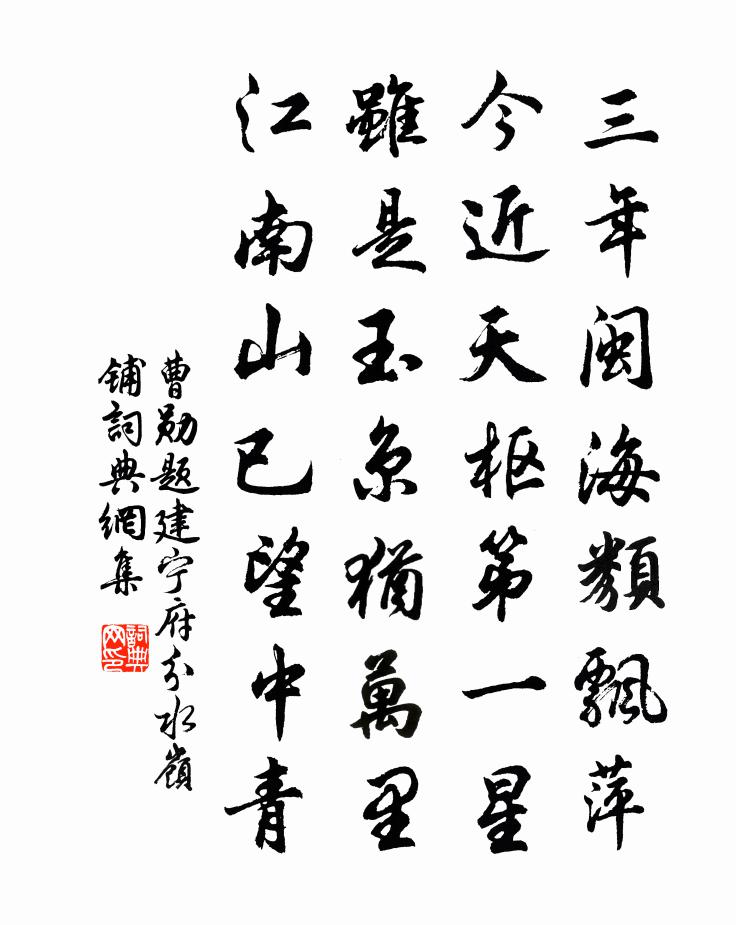 三年闽海類飄萍
今近天枢第一星
雖是玉京猶萬里
江南山已望中青
曹勋題建宁府分水嶺
铺詞典網集
詞典网印